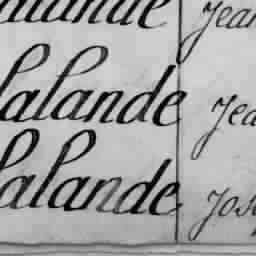 Lalande Jean
Lalande Jea
Lalande Jos